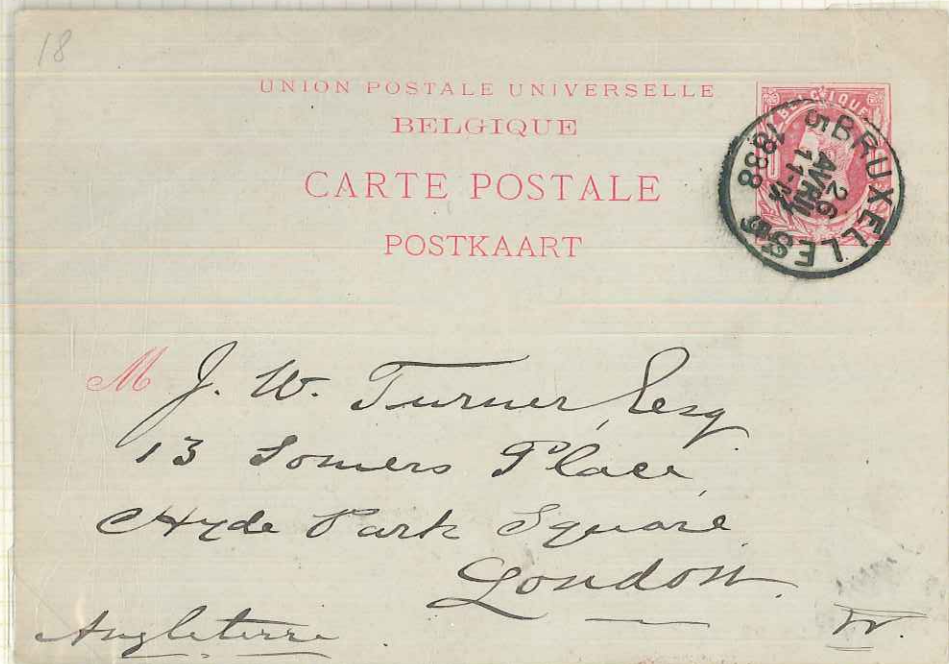 18
UNION POSTALE UNIVERSELLE
BELGIQUE
CARTE POSTALE
POSTKAART
BELGIQUE
BRUXELLES 5
26
AVRIL
11-M
1888
M J. W. Turner, Esq
13 Somers Place
Hyde Park Square
London
W.
Angleterre